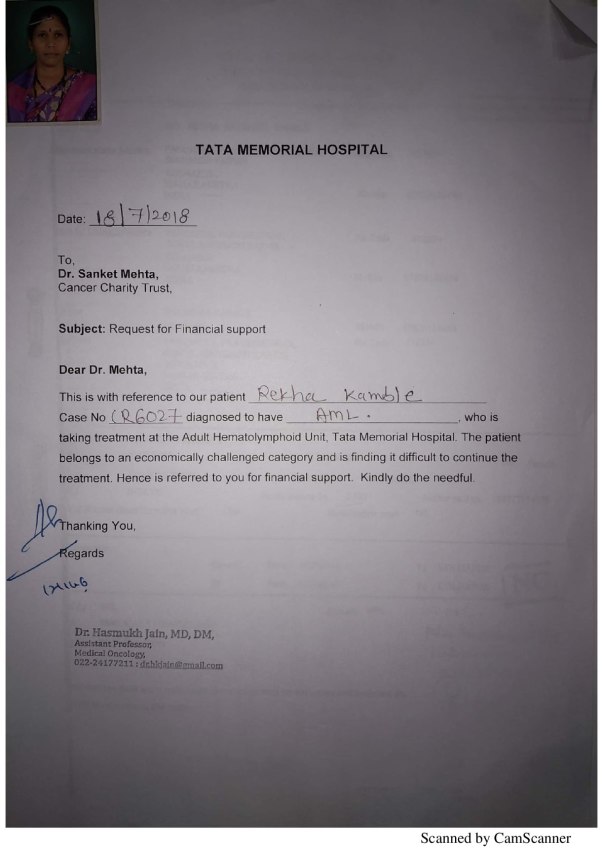 TATA MEMORIAL HOSPITAL
Date: 18/7/2018
To,
Dr. Sanket Mehta,
Cancer Charity Trust,
Subject: Request for Financial support
Dear Dr. Mehta,
This is with reference to our patient Rekha Kamble
Case No CR6027 diagnosed to have AML. , who is
taking treatment at the Adult Hematolymphoid Unit, Tata Memorial Hospital. The patient
belongs to an economically challenged category and is finding it difficult to continue the
treatment. Hence is referred to you for financial support. Kindly do the needful.
Thanking You,
Regards
Dr. Hasmukh Jain, MD, DM,
Assistant Professor,
Medical Oncology,
022-24177211 ; dr.hkjain@gmail.com
Scanned by CamScanner